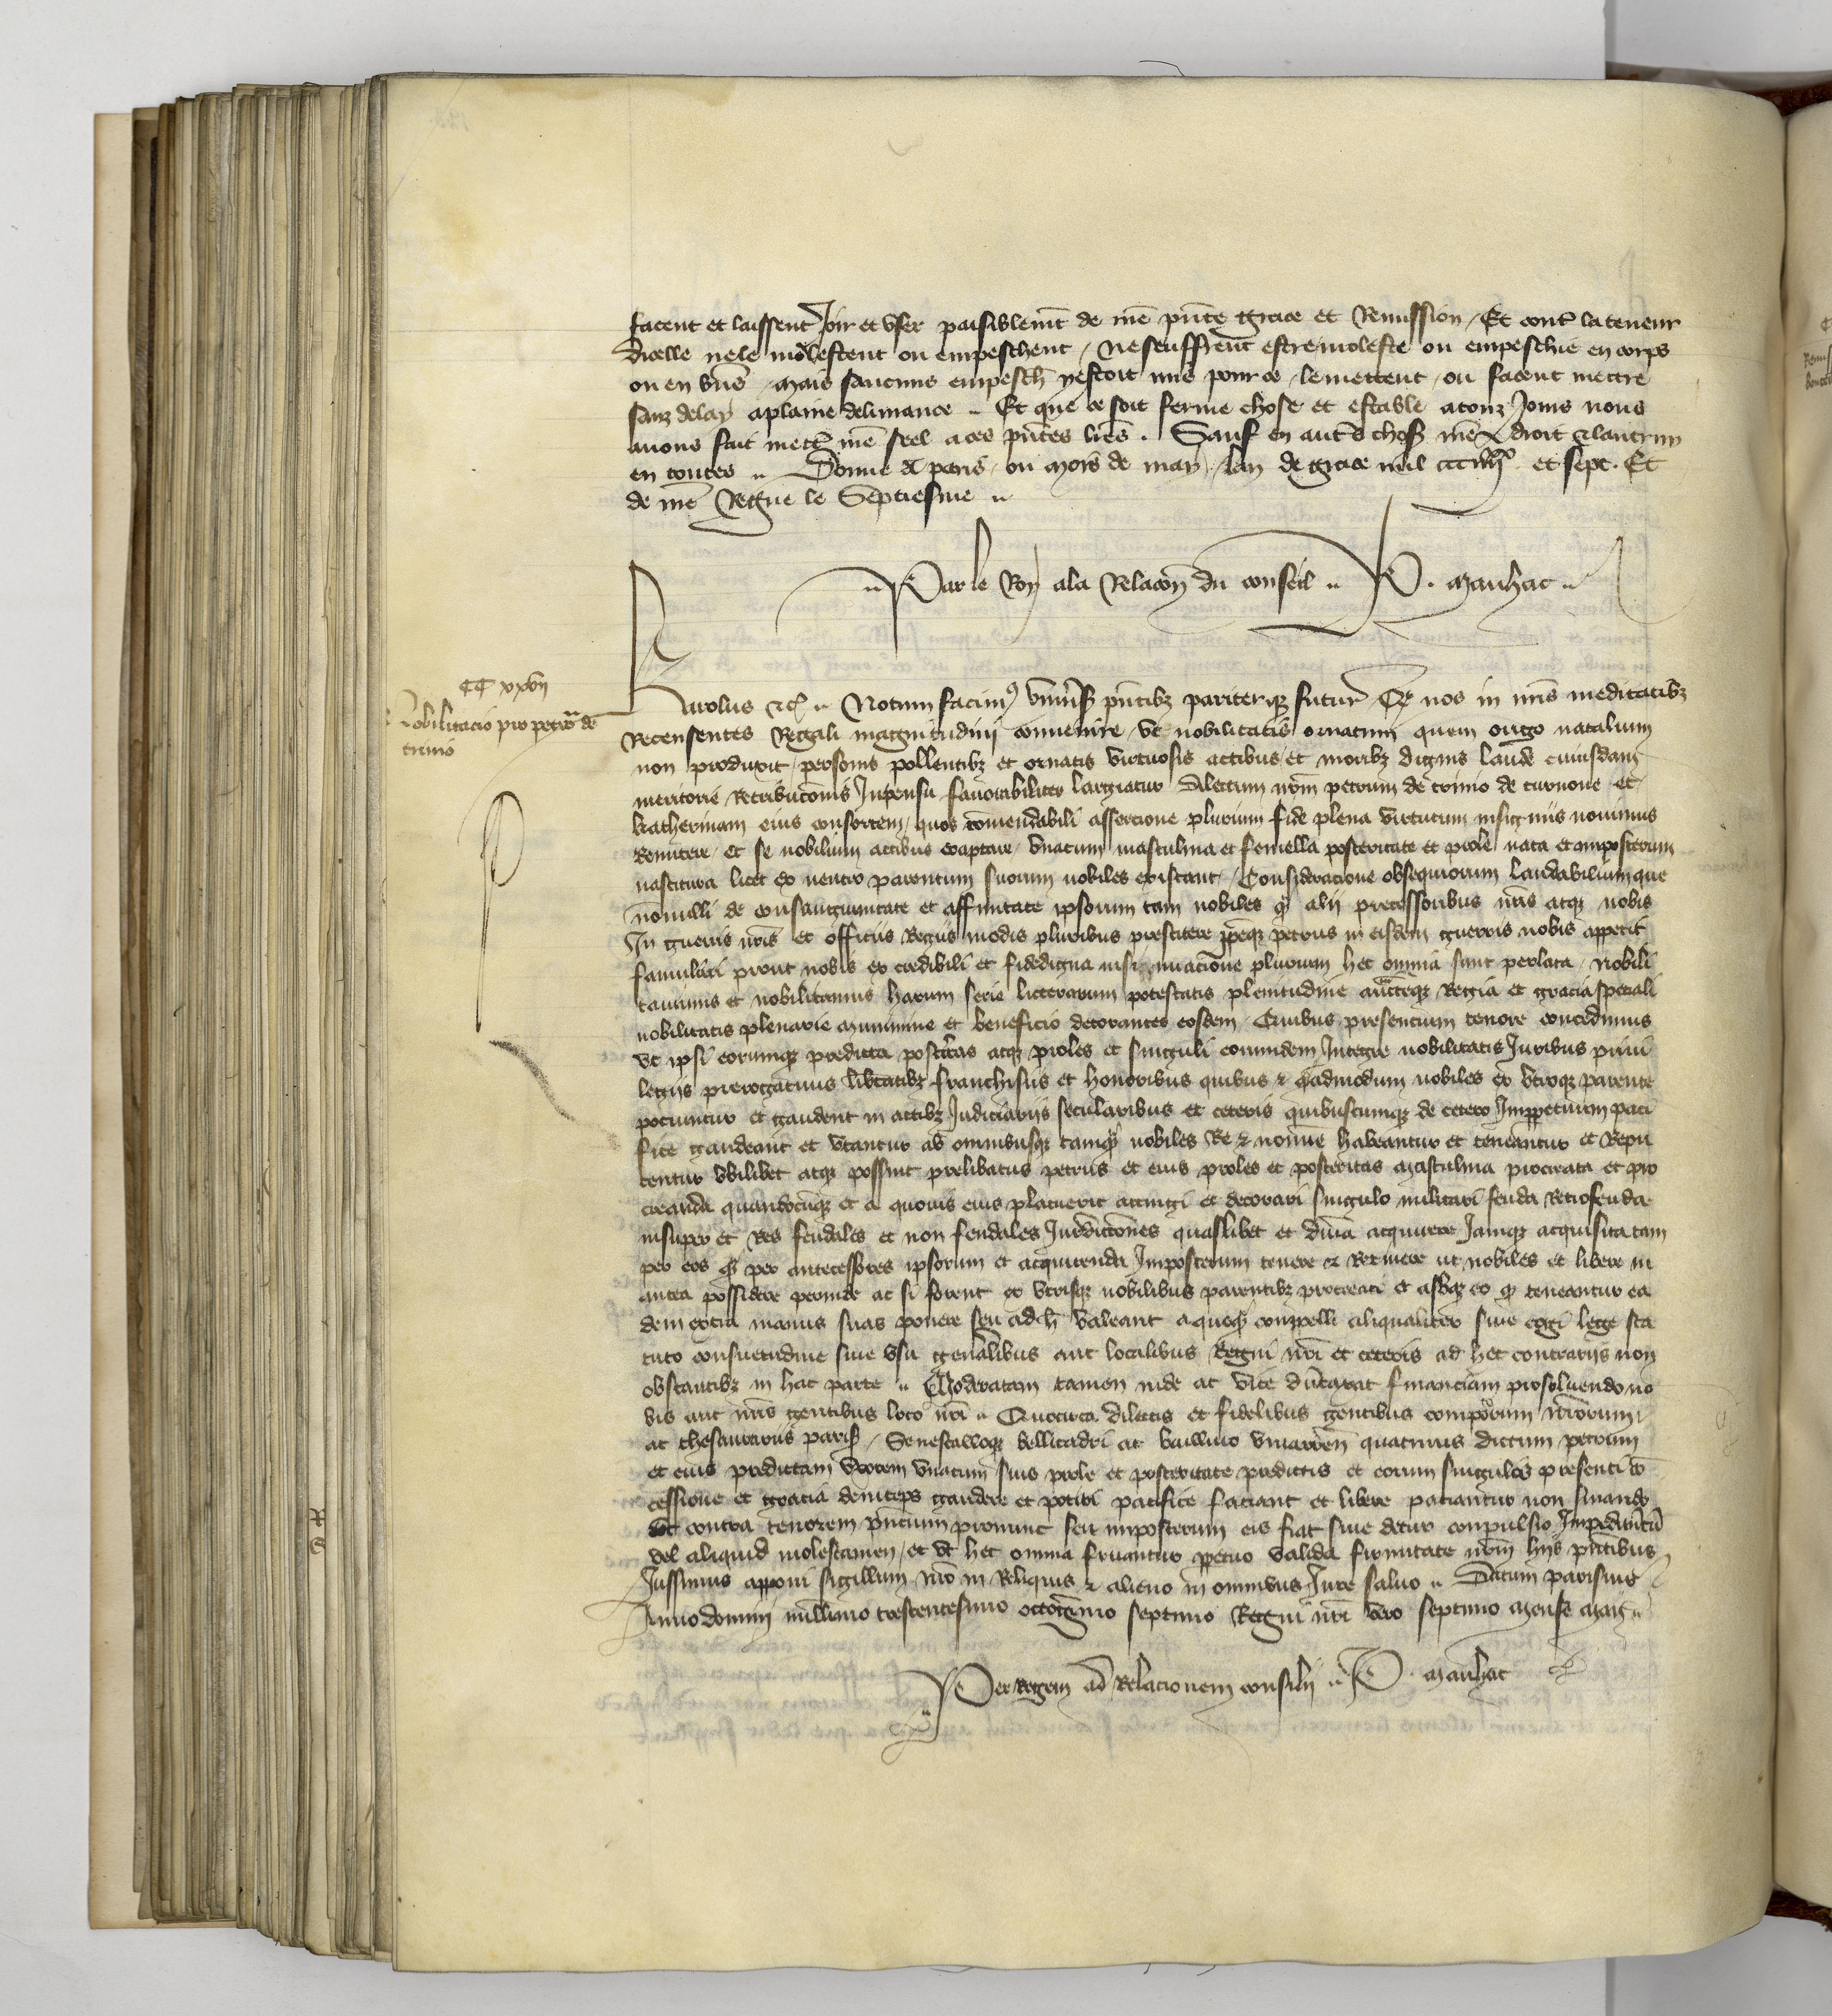 facent et laissent Joir et vser paisiblemt de nre pnte grace et Remission / Et contr la teneur
dicelle ne le molestent ou empeschent / ne seuffrent estre moleste ou empeschie en corps
ou en biens / mais saucuns empesch y estoit mis pour ce / le mettent / ou facent mettre
sanz delay a plaine deliurance .. Et que ce soit ferme chose et estable a touz Jours nous
auons fait mectr nre seel a ces pntes lres . Sauf en autres choses nre droit & lautruy
en toutes .. Donne a paris / ou mois de may / lan de grace mil ccc iiijxx et sept . Et
de nre Regne le Septiesme ..
.. Par le Roy a la Relacon du conseil .. P . manhac ..
CC xxvij
Nobilitacio pro petro de
trinio
Karolus &c .. Notum facimus vniuersis pntibz pariterqz futuris Qz nos in nris meditacibz
Recensentes Regali magnitudini conuenire / vt nobilitatis ornatum quem origo natalium
non produxit / personis pollentibz et ornatis virtuosis actibus / et moribz dignis laude cuiusdam
meritorie Retribuconis Inpensa fauorabiliter largiatur dilectum nrm petrum de trinio de turnone / et
katherinam eius consortem / quos comendabili assercione plurium fide plena virtutum insigniis nouimus
Renitere / et se nobilium actibus coaptare / vnacum masculina et femella posteritate et prole nata et imposterum
nascitura licet ex neutro parentum suorum nobiles existant / Consideracione obsequiorum laudabilium que
nonnulli de consanguinitate et affinitate ipsorum tam nobiles qm alij precessoribus nris atqz nobis
In guerris nris et officiis Regiis modis pluribus prestitere ipseqz petrus in eisdem guerris nobis appetit
famulari prout nobis ex credibili et fidedigna insinuacione plurium hec omnia sunt perlata / Nobili
tauimus et nobilitamus harum serie litterarum potestatis plenitudine auctteqz Regia et gracia speciali
nobilitatis plenarie munimine et beneficio decorantes eosdem / Quibus presencium tenore concedimus
vt ipsi eorumqz predicta posteritas atqz proles et singuli eorumdem Integre nobilitatis Juribus priui
legijs prerogatiuis libtatibz franchisiis et honoribus quibus & quadmodum nobiles ex vtroqz parente
pociuntur et gaudent in actibz Judiciarijs secularibus et ceteris quibuscumqz de cetero Imppetuum paci
fice gaudeant et vtantur ab omnibusqz tamqm nobiles Re & nomine habeantur et teneantur et Repu
tentur vbilibet atqz possint prelibatus petrus et eius proles et posteritas masculina procreata et pro
creanda quandocuqz et a quouis eius placuerit accingi et decorari singulo militari feuda Retrofeuda
insuper et Res feudales et non feudales Jurdictiones quaslibet et dnia acquirere Jamqz acquisita tam
per eos qm per antecessores ipsorum et acquirenda Imposterum tenere & Retinere ut nobiles et libere in
antea possidere perinde ac si forent ex vtrisqz nobilibus parentibz procreati et absqz eo qd teneantur ea
dem extra manus suas ponere seu ad h valeant a quoqm compelli aliqualiter siue cogi lege sta
tuto consuetudine siue vsu genalibus aut localibus Regni nri et ceteris ad hec contrarijs non
obstantibz in hac parte .. Moderatam tamen inde ac vice dutaxat financiam prosoluendo no
bis aut nris gentibus loco nri .. Quocirca dilectis et fidelibus gentibus compotorum nrorum
ac thesaurariis paris / Senescalloqz bellicadri ac bailliuo viuarien quatinus dictum petrum
et eius predictam vxorem vnacum suis prole et posteritate predictis et eorum singulos presenti con
cessione et gracia deinceps gaudere et potiri pacifice faciant et libere paciantur non sinando
vt contra tenorem pntium pronunc seu imposterum eis fiat siue detur conpulsio Impeditiuu
vel aliquid molestamen / et vt hec omnia fruantur ppetuo valida firmitate nrm hijs pntibus
Jussimus apponi sigillum nro in Reliquis & alieno in omnibus Jure saluo .. Datum parisius
Anno domini millimo trescentesimo octogesimo septimo Regni nri vero septimo mense maij ..
.. Per Regem ad Relacionem consilij .. P . manhac